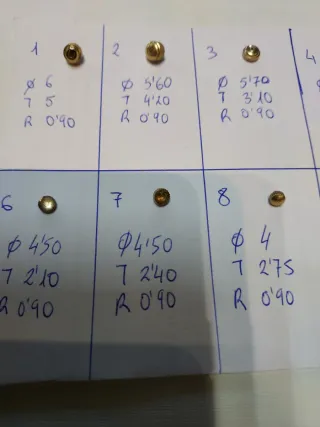 1
Ø 6
T 5
R 0'90
2
Ø 5'60
T 4'20
R 0'90
3
Ø 5'70
T 3'10
R 0'90
4
6
Ø 4'50
T 2'10
R 0'90
7
Ø 4'50
T 2'40
R 0'90
8
Ø 4
T 2'75
R 0'90